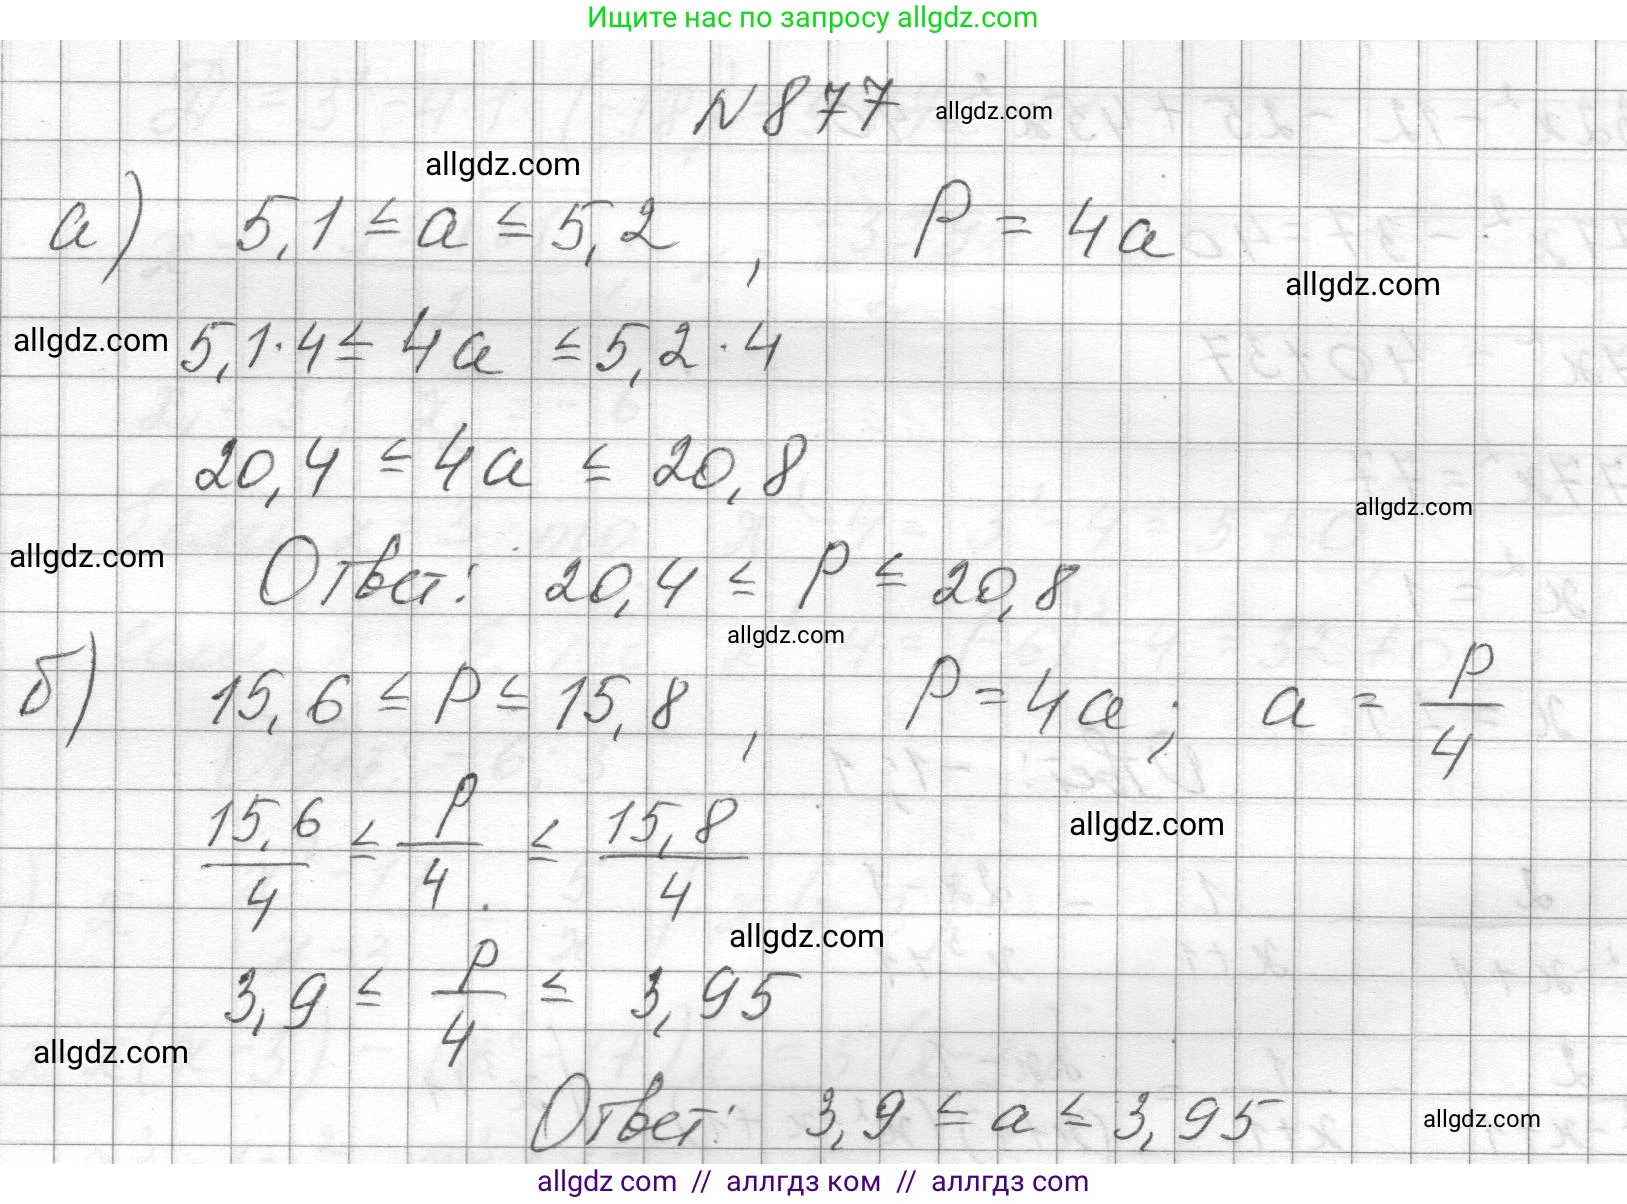 Ищите нас по запросу allgdz.com
N877 allgdz.com
allgdz.com
а) 5,1 ≤ a ≤ 5,2 , P = 4a
allgdz.com
allgdz.com 5,1·4 ≤ 4a ≤ 5,2·4
20,4 ≤ 4a ≤ 20,8
allgdz.com
allgdz.com Ответ: 20,4 ≤ P ≤ 20,8
allgdz.com
б) 15,6 ≤ P ≤ 15,8 , P = 4a; a = P/4
15,6/4 ≤ P/4 ≤ 15,8/4
allgdz.com
allgdz.com
3,9 ≤ P/4 ≤ 3,95
allgdz.com
Ответ: 3,9 ≤ a ≤ 3,95 allgdz.com
allgdz com // аллгдз ком // аллгдз com